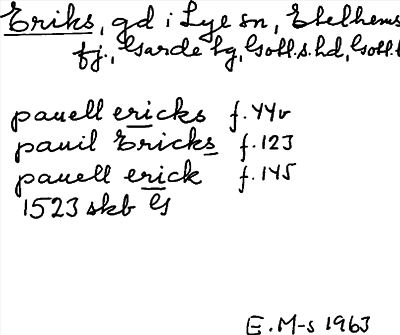 Eriks, gd i Lye sn, Etelhems
tj., Garde hg, Gotl.s.hd, Gotl.l
pauell ericks f.44v
pauil Ericks f.123
pauell erick f.145
1523 skb G
E.M-s 1963